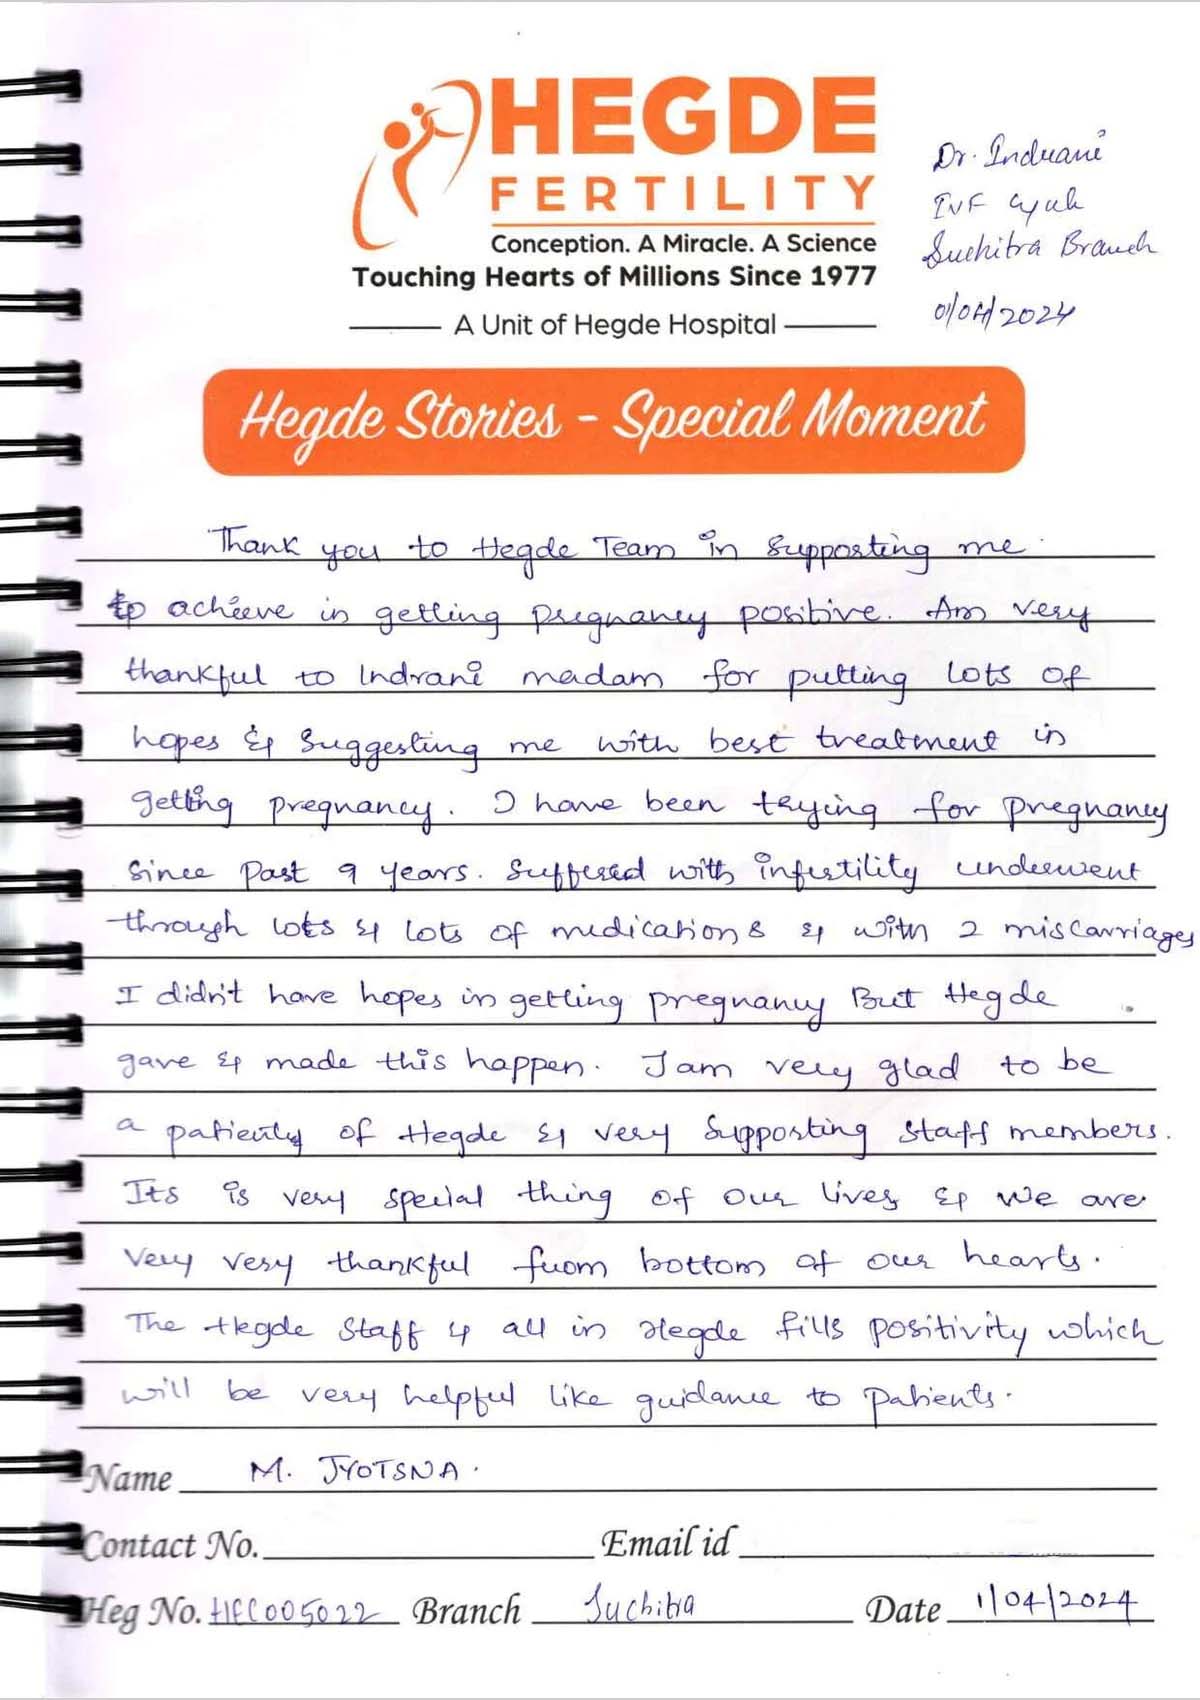 HEGDE
FERTILITY
Conception. A Miracle. A Science
Touching Hearts of Millions Since 1977
A Unit of Hegde Hospital
Dr. Indrani
IVF cycle
Suchitra Branch
01/04/2024
Hegde Stories - Special Moment
Thank you to Hegde Team in supporting me
to achieve in getting pregnancy positive. Am very
thankful to Indrani madam for putting lots of
hopes & suggesting me with best treatment in
getting pregnancy. I have been trying for pregnancy
since past 9 years. Suffered with infertility underwent
through lots & lots of medications & with 2 miscarriages
I didn't have hopes in getting pregnancy But Hegde
gave & made this happen. I am very glad to be
a patient of Hegde & very supporting staff members.
Its is very special thing of our lives & we are
very very thankful from bottom of our hearts.
The Hegde staff & all in Hegde fills positivity which
will be very helpful like guidance to patients.
Name M. JYOTSNA.
Contact No. Email id
Heg No. HEC005022 Branch Suchitra Date 1/04/2024